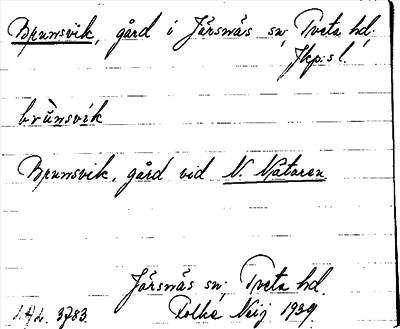 Brunsvik, gård i Järsnäs sn, Tveta hd.
Jkp:s l.
brùnsvík
Brunsvik, gård vid N. Nätaren
Järsnäs sn, Tveta hd.
3783. Folke Neij 1939.